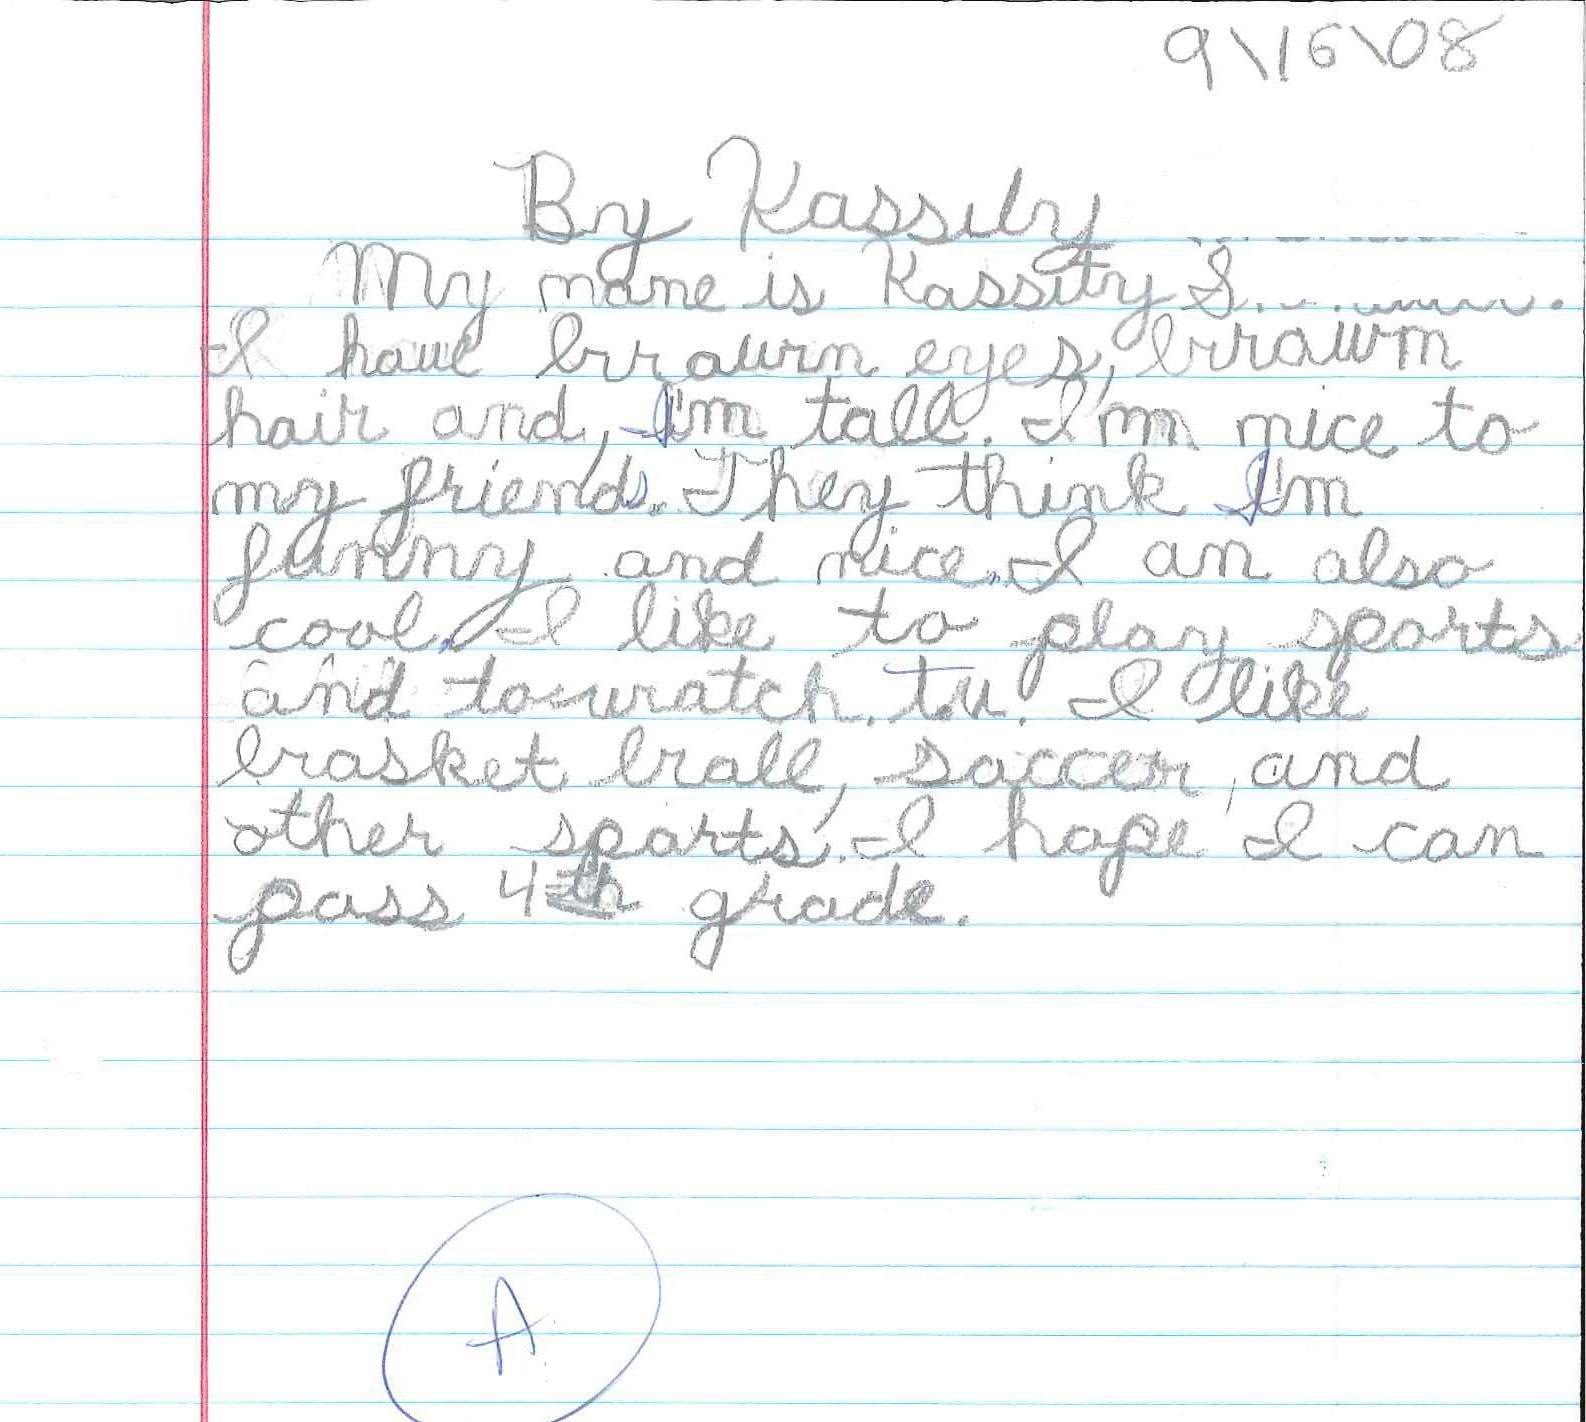 9\16\08
By Kassity
My mane is Kassity S
I have brown eyes, brown
hair and, I'm tall. I'm nice to
my friends. They think I'm
funny and nice. I an also
cool. I like to play sports
and to watch t.v. I like
basket ball, soccer, and
other sports. I hope I can
pass 4th grade.
A